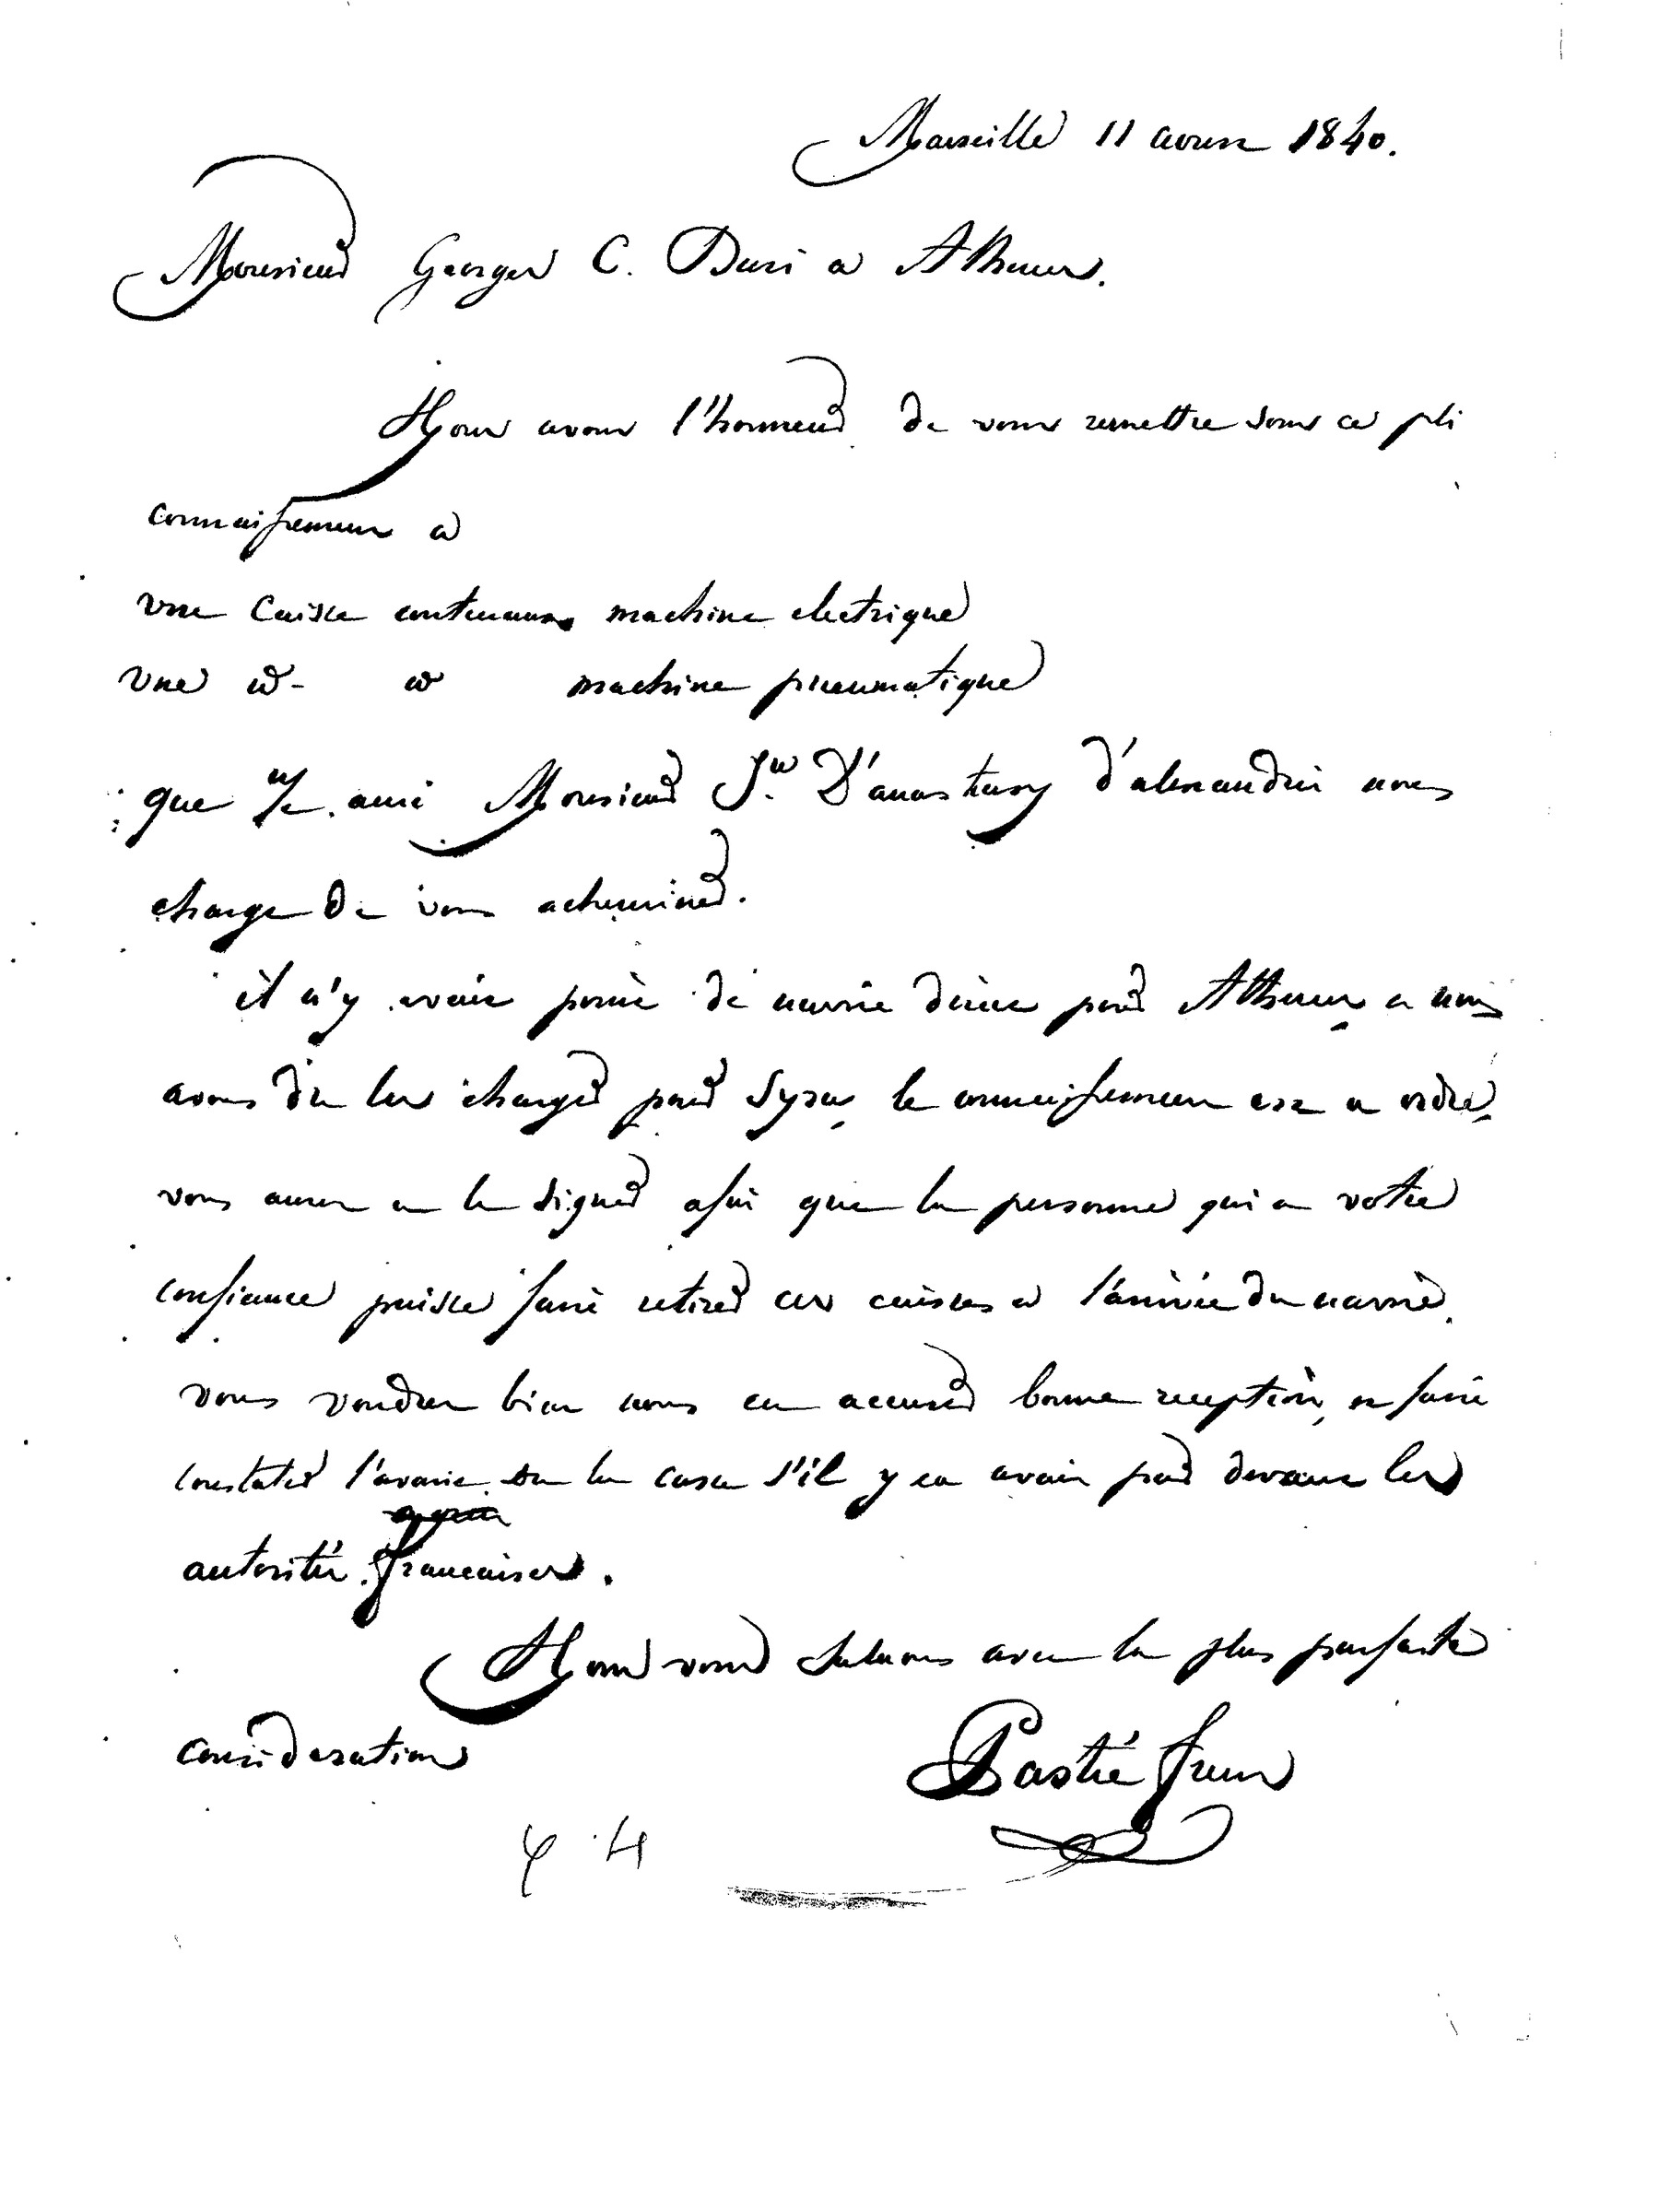 Marseille 11 aoust 1840.
Monsieur Georges C. Duri a Athenes.
Nous avons l'honneur de vous remettre sous ce pli
connaissement a
une Caisse contenant machine electrique
une do do machine pneumatique
que n/ ami Monsieur Jn D'anastasy d'alexandrie nous
charge de vous acheminer.
il n'y avait point de navire direct pour Athenes et nous
avons du les charger pour Syra, le connaissement est a ordre,
vous aurez a le signer afin que la personne qui a votre
confiance puisse faire retirer ces caisses a l'arrivée du navire.
vous voudrez bien nous en accuser bonne reception, et faire
constater l'avarie, s'il y en avait par devant les
autorités francaises.
Nous vous saluons avec la plus parfaite
consideration
Pastré freres